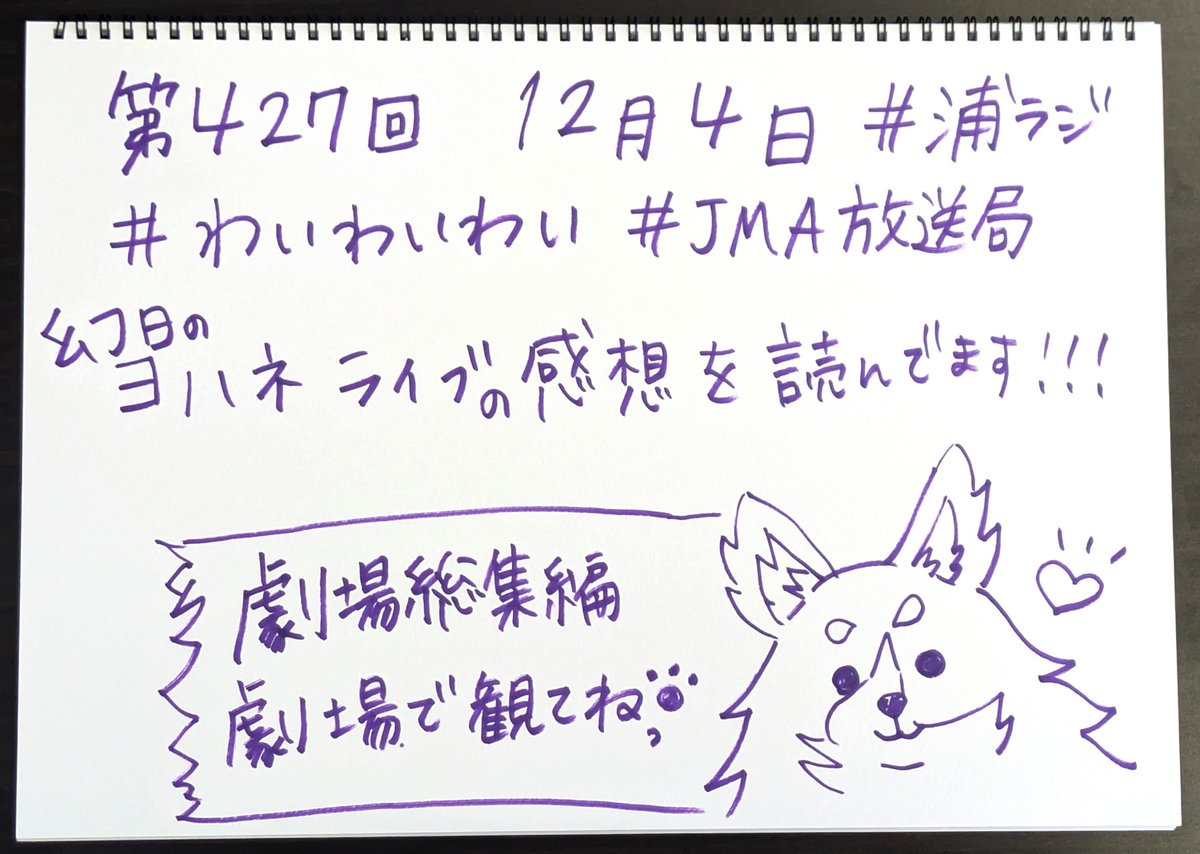 第427回 12月4日 #浦ラジ
#わいわいわい #JMA放送局
幻日の
ヨハネ ライブの感想を読んでます!!!
劇場総集編
劇場で観てねっ